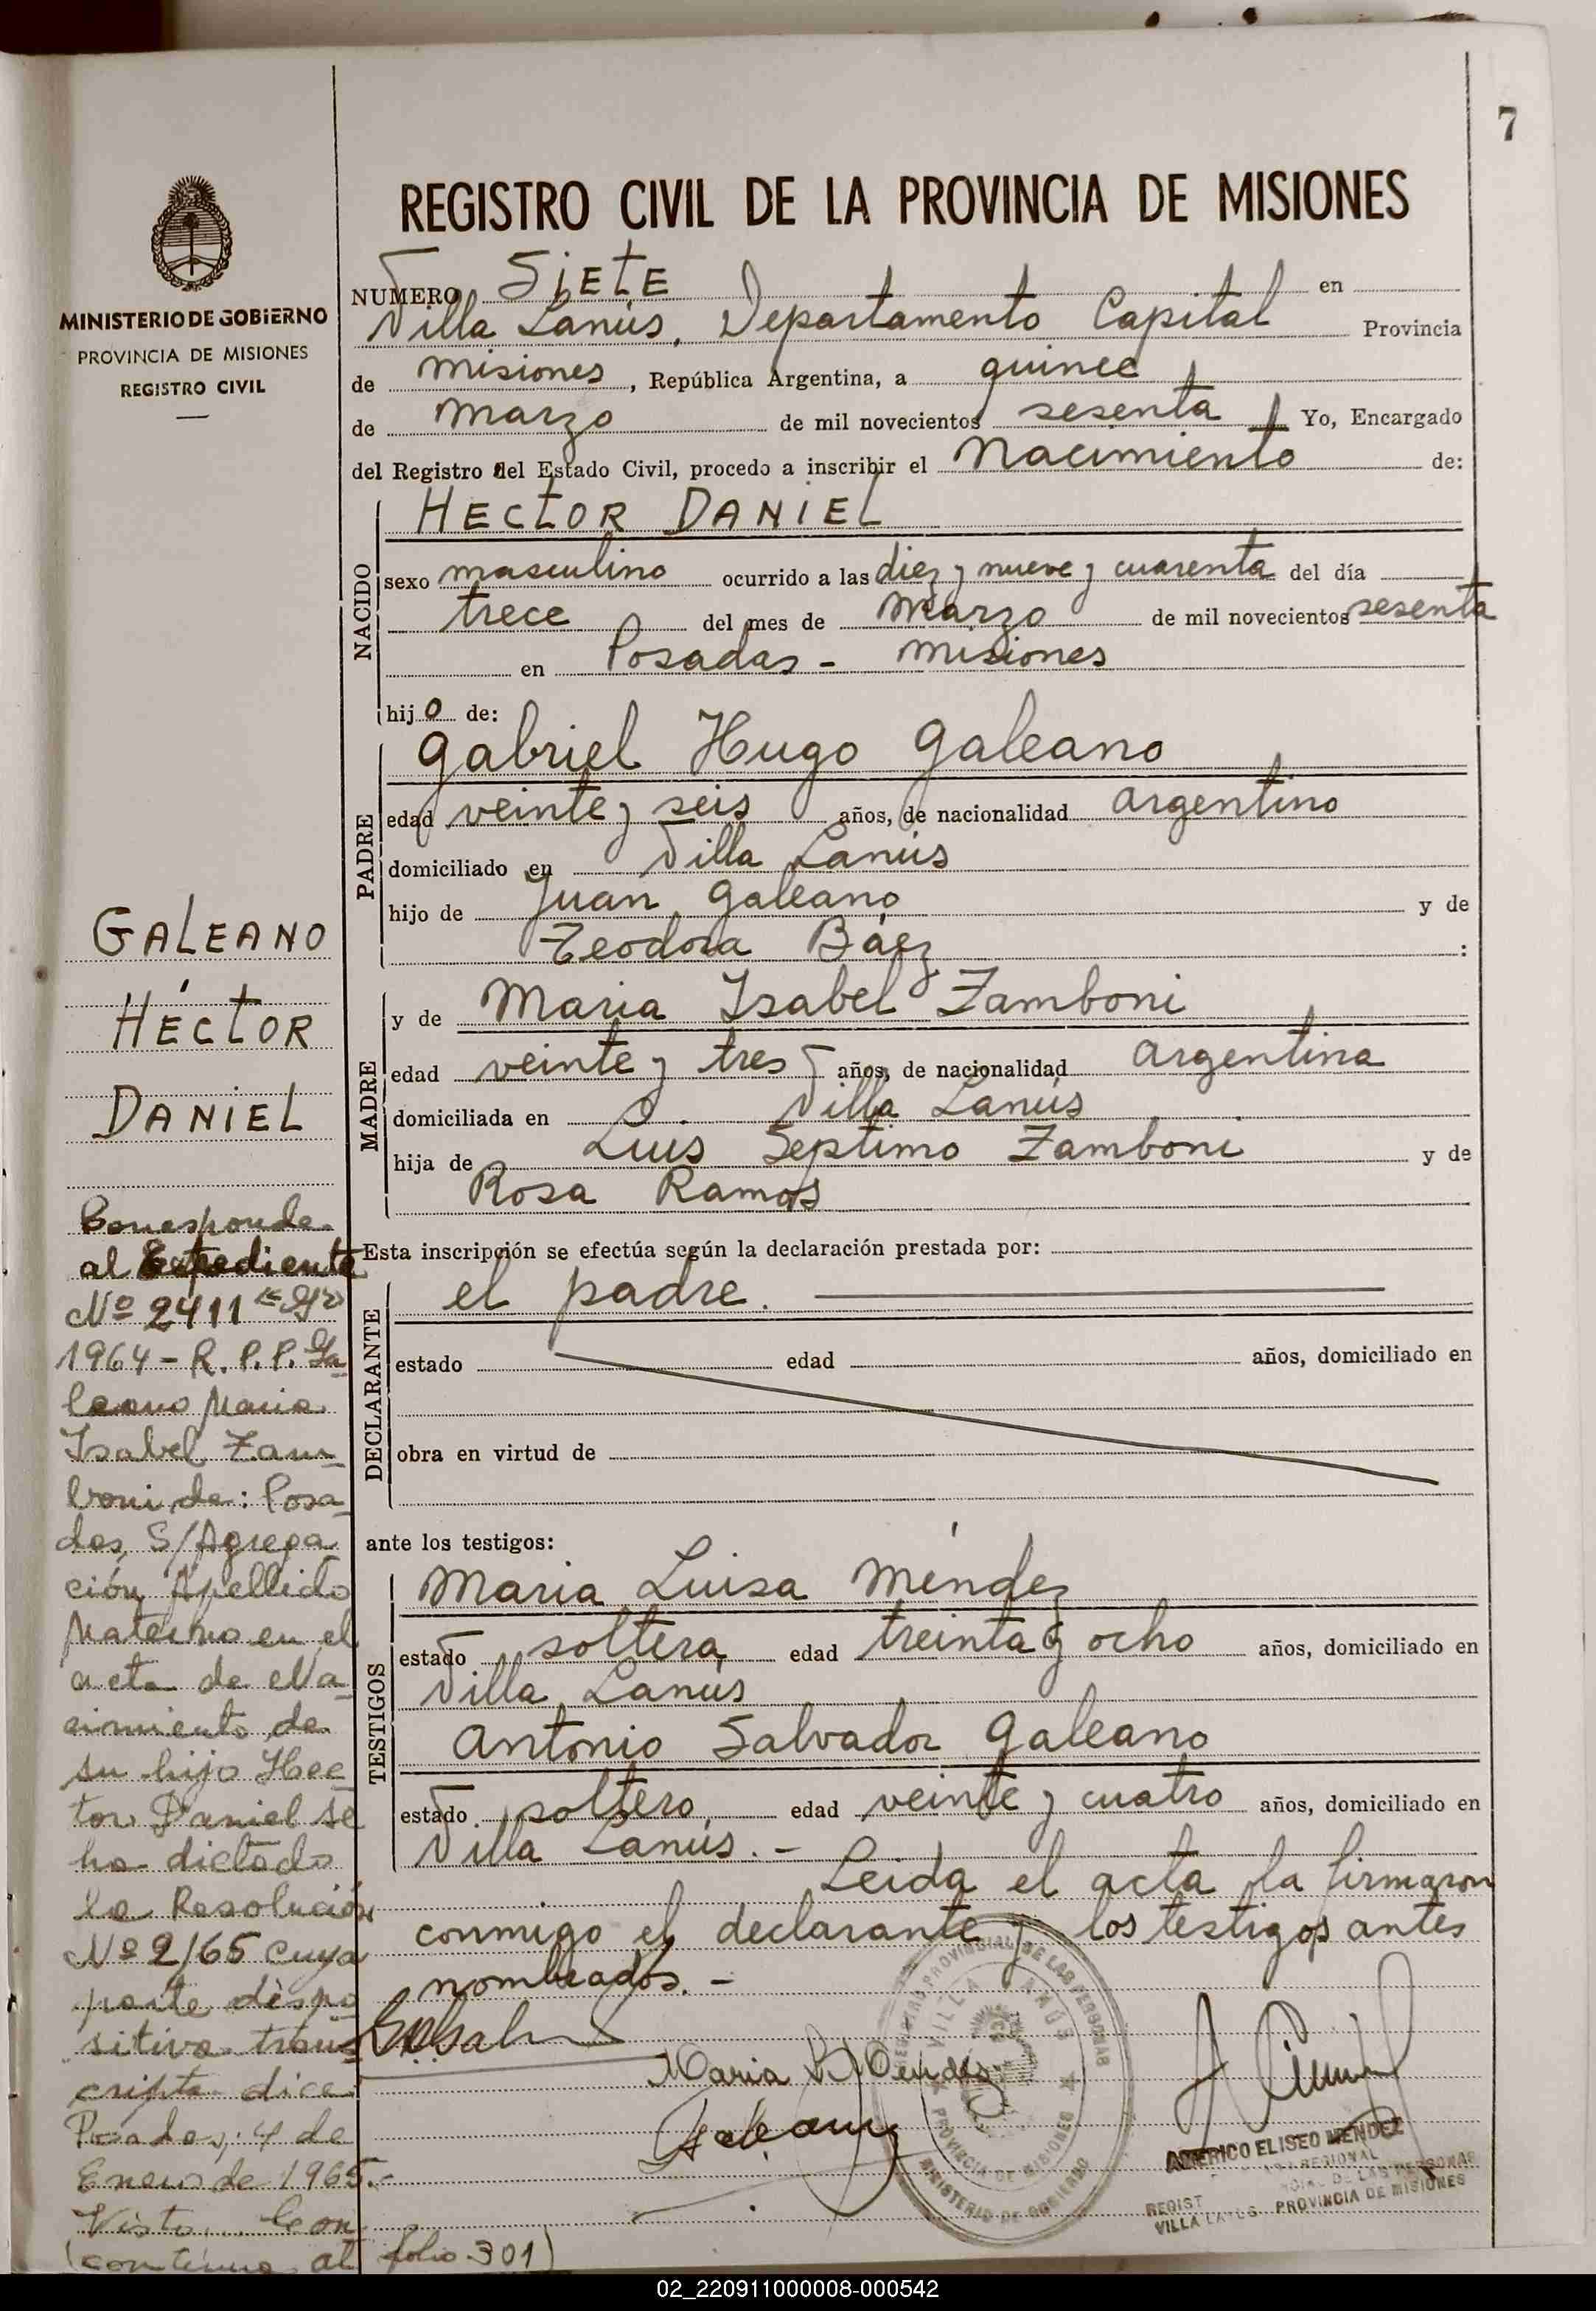 7
MINISTERIO DE GOBIERNO
PROVINCIA DE MISIONES
REGISTRO CIVIL
REGISTRO CIVIL DE LA PROVINCIA DE MISIONES
NUMERO SiEtE en
Villa Lanús, Departamento Capital Provincia
de Misiones, República Argentina, a quince
de Marzo de mil novecientos sesenta Yo, Encargado
del Registro del Estado Civil, procedo a inscribir el Nacimiento de:
NACIDO
HECtOR DANIEL
sexo masculino ocurrido a las diez y nueve y cuarenta del día
trece del mes de Marzo de mil novecientos sesenta
en Posadas - Misiones
hijo de:
PADRE
Gabriel Hugo Galeano
edad veinte y seis años, de nacionalidad argentino
domiciliado en Villa Lanús
hijo de Juan Galeano y de
Teodora Báez :
MADRE
y de Maria Isabel Zamboni
edad veinte y tres años, de nacionalidad argentina
domiciliada en Villa Lanús
hija de Luis Septimo Zamboni y de
Rosa Ramos
Esta inscripción se efectúa según la declaración prestada por:
DECLARANTE
el padre.
estado edad años, domiciliado en
obra en virtud de
ante los testigos:
TESTIGOS
Maria Luisa Méndez
estado soltera edad treinta y ocho años, domiciliado en
Villa Lanús
Antonio Salvador Galeano
estado soltero edad veinte y cuatro años, domiciliado en
Villa Lanús.-
Leida el acta la firmaron
conmigo el declarante y los testigos antes
nombrados.-
Maria L Mendez
Galeano
REGISTRO PROVINCIAL DE LAS PERSONAS
VILLA LANÚS
PROVINCIA DE MISIONES
MINISTERIO DE GOBIERNO
AMERICO ELISEO MENDEZ
REGIONAL
DE LAS PERSONAS
VILLA LANUS - PROVINCIA DE MISIONES
GALEANO
HÉCtOR
DANIEL
Corresponde
al Expediente
Nº 2411
1964 - R.P.P. Ga
leano Maria
Isabel Zam
boni de: Posa
das, S/Agrega
ción Apellido
Materno en el
acta de Na
cimiento de
su hijo Hec
tor Daniel se
ha dictado
la Resolución
Nº 2/65 cuya
parte dispo
sitiva trans
cripta dice
Posadas, 4 de
Enero de 1965.-
Visto... Con
(continua al folio 301)
02_220911000008-000542